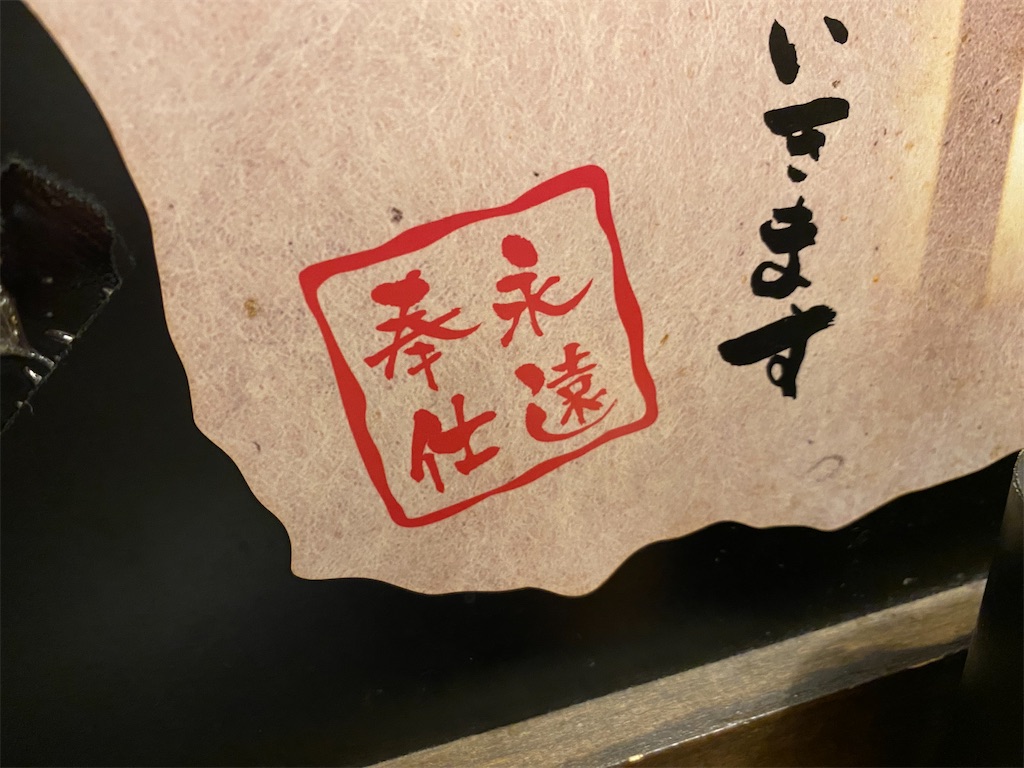 いきます
永遠
奉仕